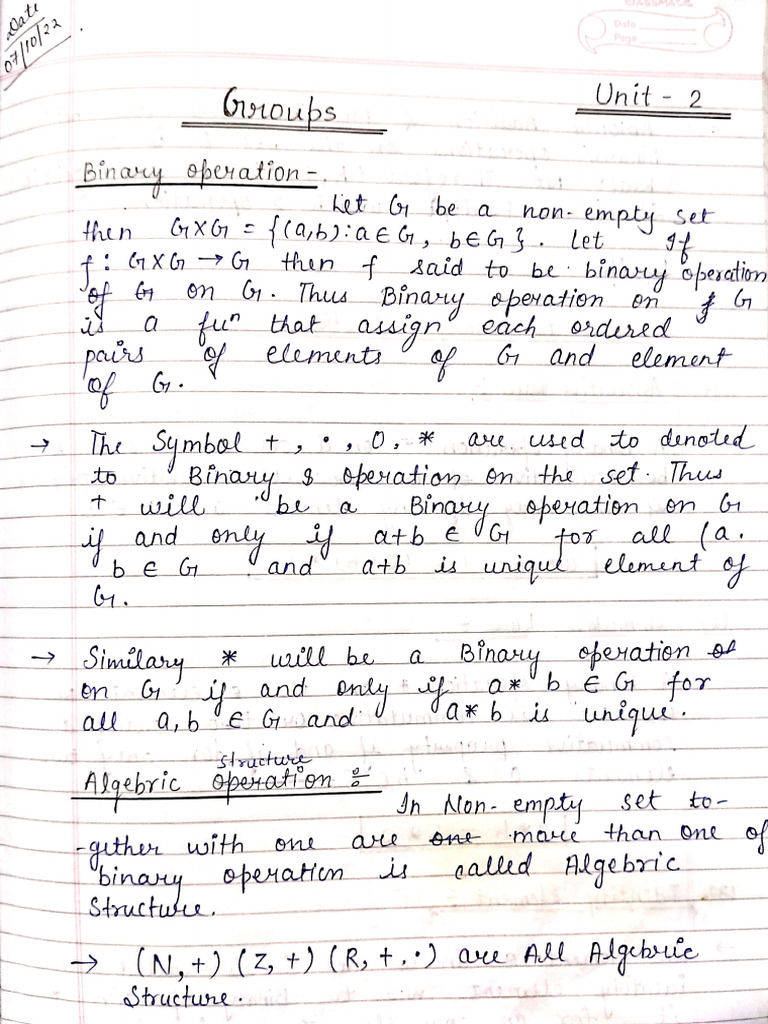 Date
07/10/22
CLASSMATE
Date
Page
Groups
Unit - 2
Binary operation -
Let G be a non-empty set
then G×G = {(a,b) : a ∈ G, b ∈ G}. Let If
f : G×G → G then f said to be binary operation
of G on G. Thus Binary operation on f G
is a fuⁿ that assign each ordered
pairs of elements of G and element
of G.
→ The Symbol +, •, O, * are used to denoted
to Binary & operation on the set. Thus
+ will be a Binary operation on G
if and only if a+b ∈ G for all (a.
b ∈ G and a+b is unique element of
G.
→ Similary * will be a Binary operation of
on G if and only if a * b ∈ G for
all a, b ∈ G and a * b is unique.
Structure
Algebric operation ÷
In Non-empty set to-
-gether with one are one more than one of
binary operation is called Algebric
Structure.
→ (N, +) (Z, +) (R, +, •) are All Algebric
Structure.